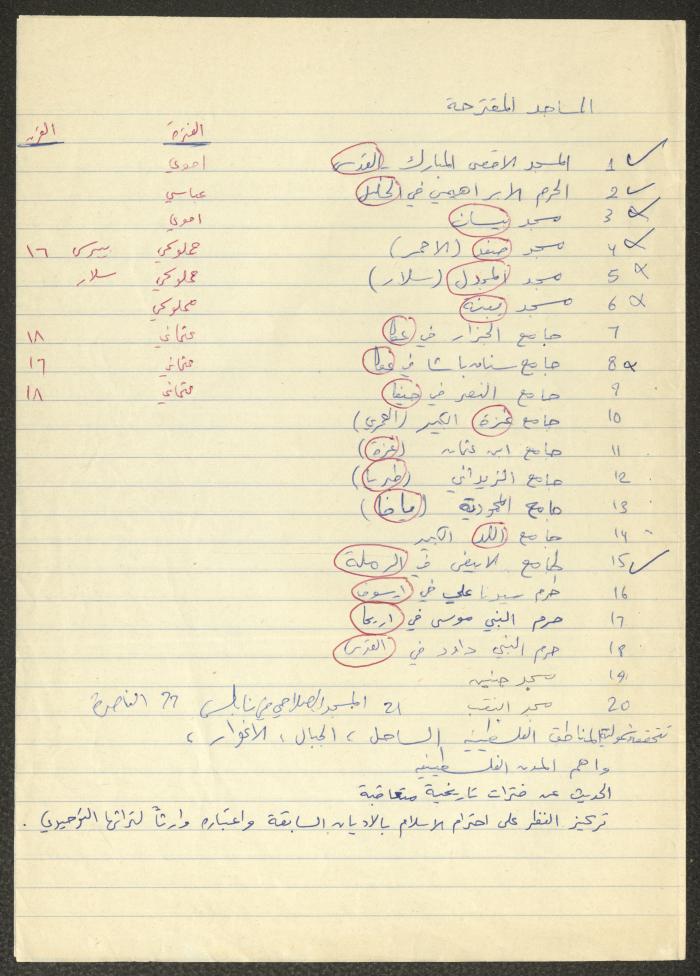 المساجد المقترحة
الفترة القرن
1 المسجد الاقصى المبارك - القدس اموي
2 الحرم الابراهيمي في الخليل عباسي
3 مسجد بيسان اموي
4 مسجد صفد (الاحمر) مملوكي بيبرس ١٦
5 مسجد المجدل (سلار) مملوكي سلار
6 مسجد يبنة مملوكي
7 جامع الجزار في عكا عثماني ١٨
8 جامع سنان باشا في عكا عثماني ١٦
9 جامع النصر في حيفا عثماني ١٨
10 جامع غزة الكبير (العمري)
11 جامع ابن عثمان (غزة)
12 جامع الزيداني (طبريا)
13 جامع المحمودية (يافا)
14 جامع اللد الكبير
15 الجامع الابيض في الرملة
16 حرم سيدنا علي في ارسوف
17 حرم النبي موسى في اريحا
18 حرم النبي داود في القدس
19 مسجد جنين
20 مسجد النقب 21 المسجد الصلاحي في نابلس 22 الناصرة
شمولية المناطق الفلسطينية الساحل، الجبال، الأغوار،
واهم المدن الفلسطينية
الحديث عن فترات تاريخية متعاقبة
تركيز النظر على احترام الاسلام بالاديان السابقة واعتباره وارثاً لتراثها التوحيدي.